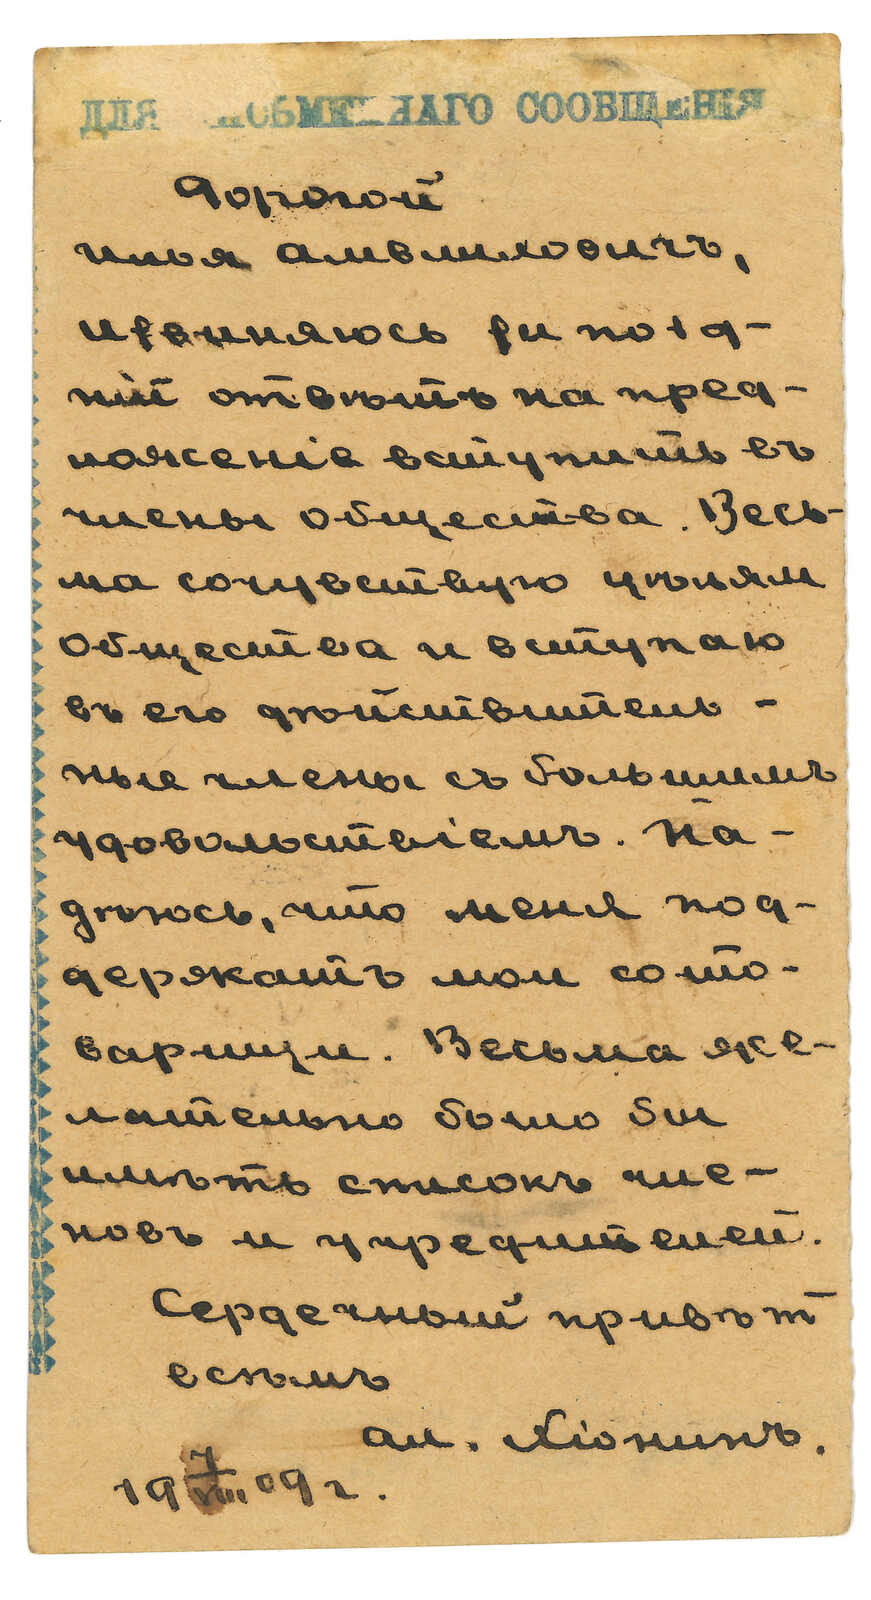 ДЛЯ ПИСЬМЕННАГО СООБЩЕНІЯ
Дорогой
Илья Амвлиховичъ,
извиняюсь за позд-
ній отвѣтъ на пред-
ложеніе вступить въ
члены общества. Весь-
ма сочувствую цѣлям
общества и вступаю
въ его дѣйствитель-
ные члены съ большимъ
удовольствіемъ. На-
дѣюсь, что меня под-
держатъ мои сото-
варищи. Весьма же-
лательно было бы
имѣть список чле-
новъ и учредителей.
Сердечный привѣт
всѣмъ
Ал. Хіонинъ.
19 7/VIII 09 г.